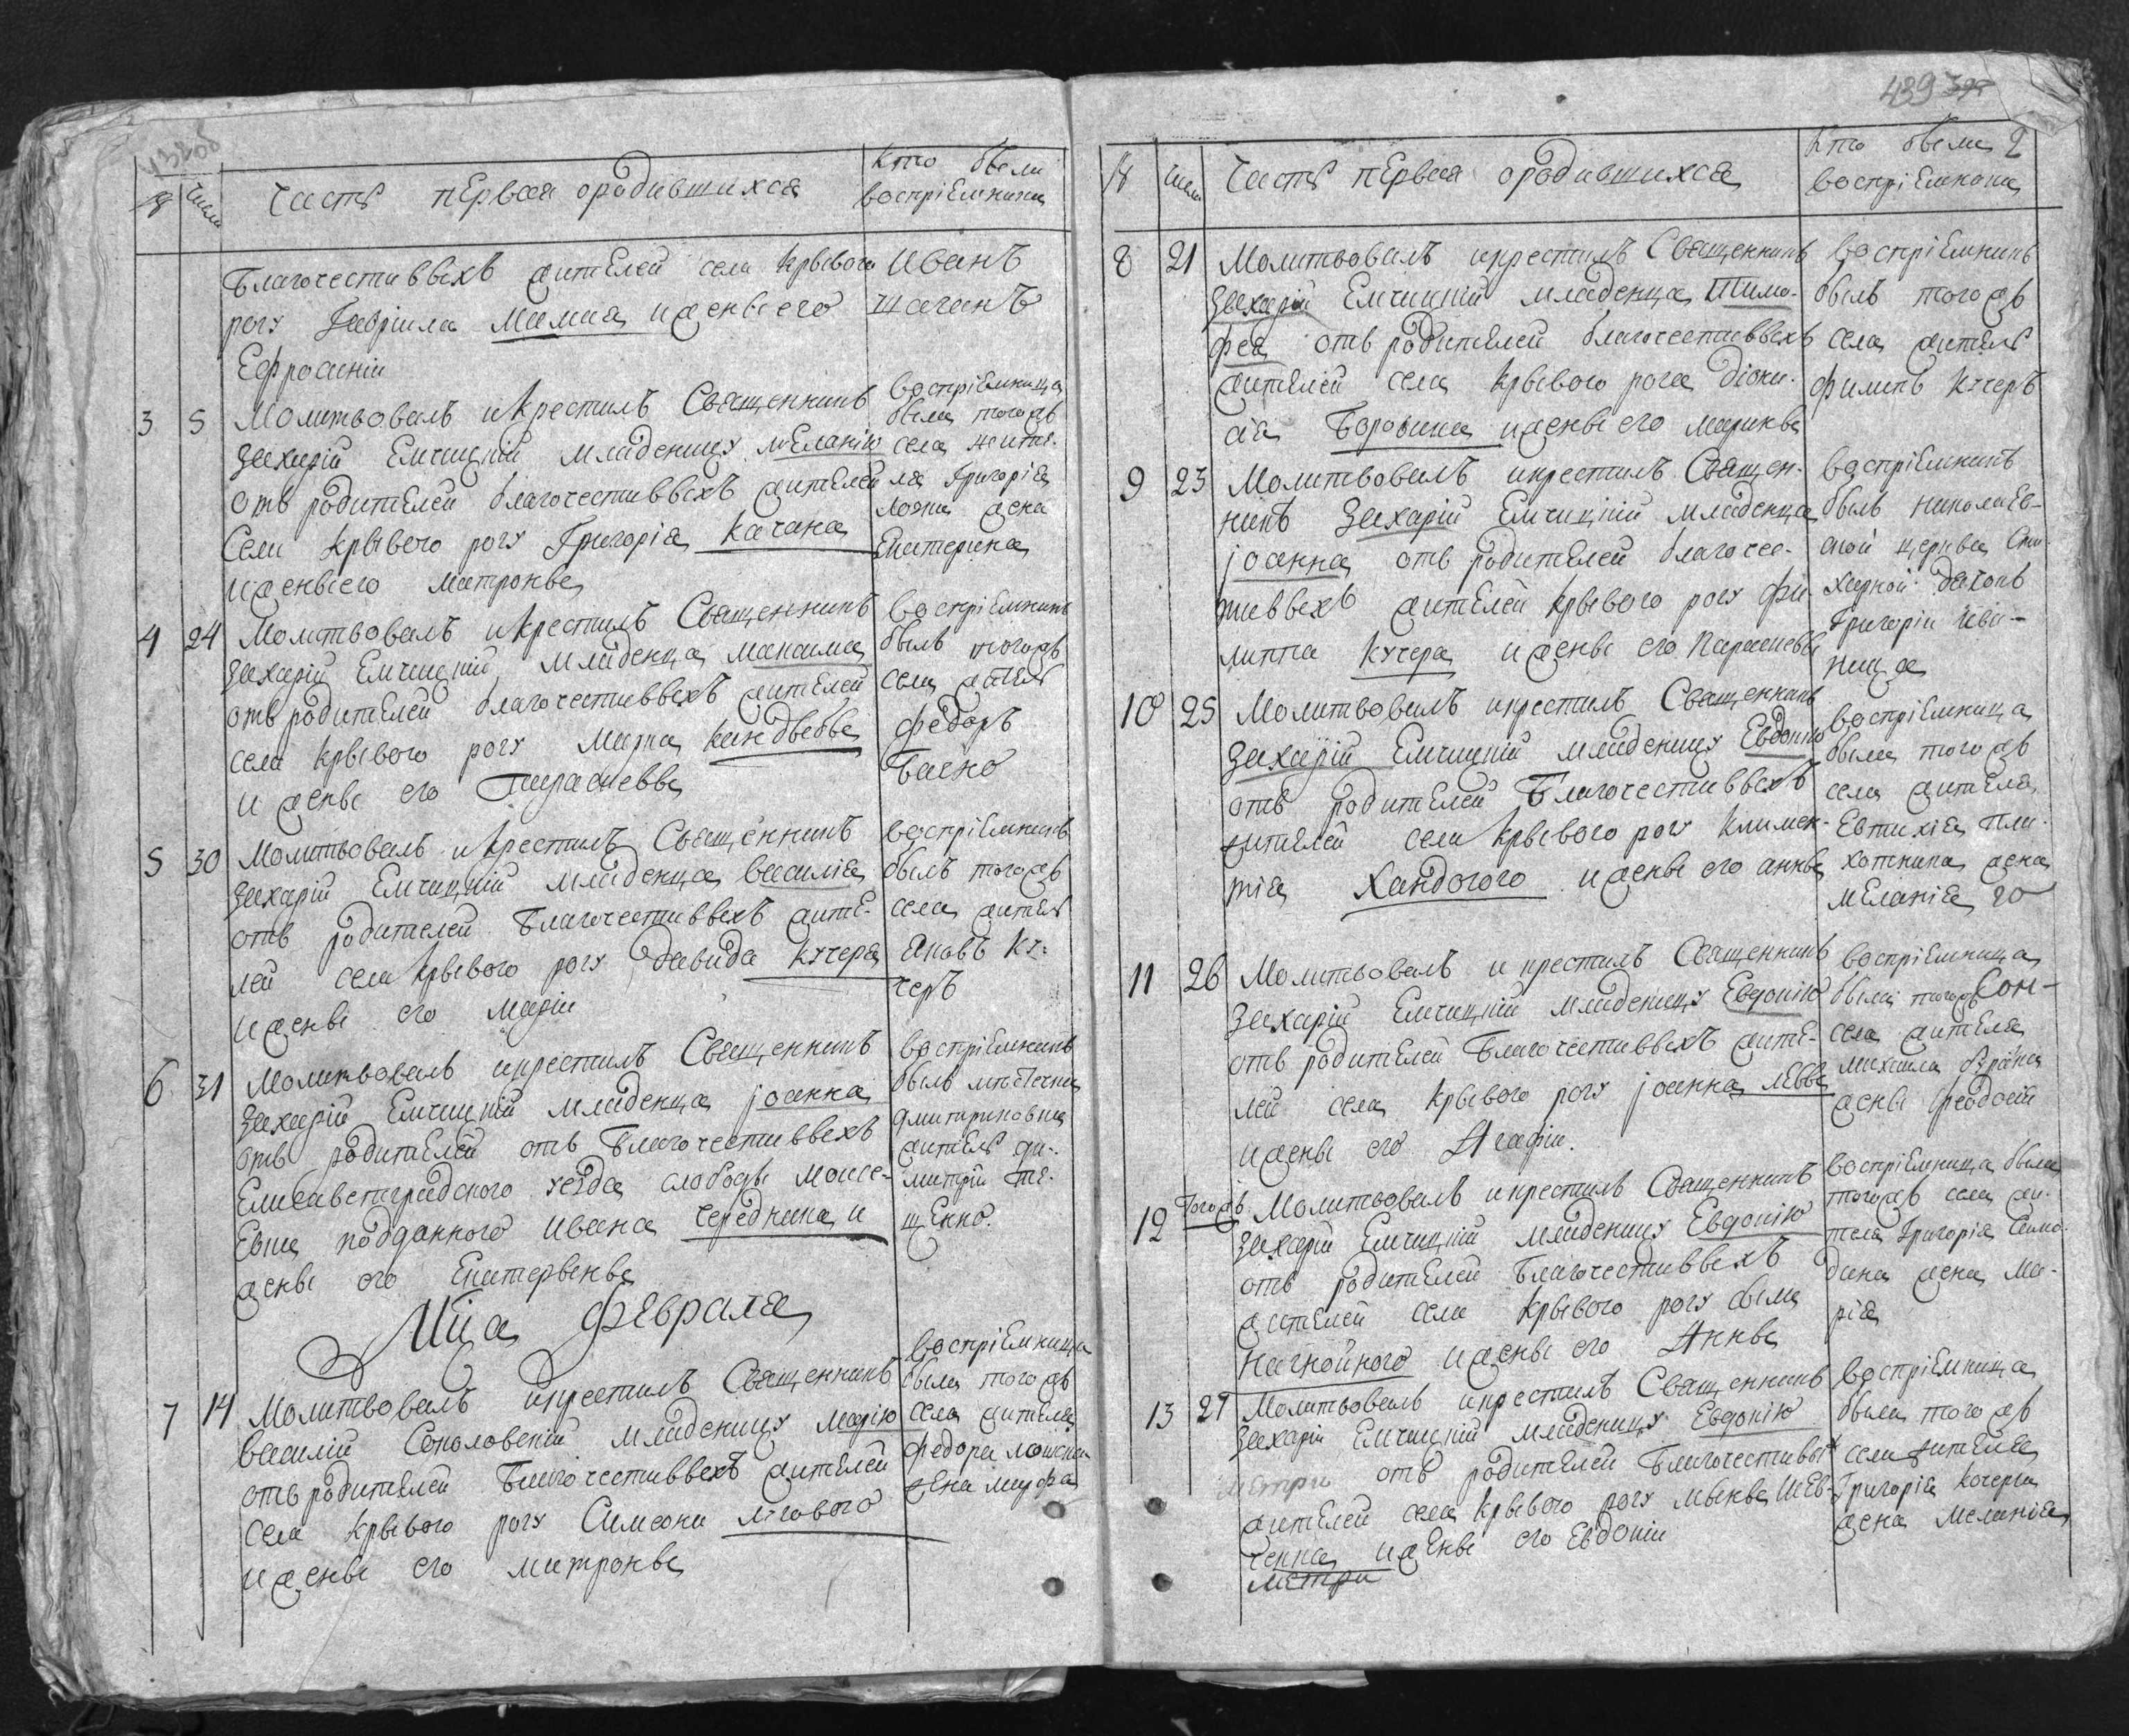 № Числа Часть первая о родившихся Кто были
восприемники
Благочестивыхъ жителей села Кривого
рогу Гавриила и женыего
Ефросиніи
Иванъ
3 5 Молитвовалъ икрестилъ Священникъ
Захарій Емчицкій младеницу Меланію
отъ родителей благочестивыхъ жителей
Села Кривого рогу Григорія Качана
иженыего матроны
восприемница
была тогожъ
села жите-
ля Григорія
жена
Екатерина
4 24 Молитвовалъ икрестилъ Священникъ
Захарій Емчицкій младенца Максима
отъ родителей благочестивыхъ жителей
села Кривого рогу Марка
и жены его Параскевы
восприемникъ
былъ тогожъ
села житель
Федоръ
5 30 Молитвовалъ икрестилъ Священникъ
Захарій Емчицкій младенца Василія
отъ родителей Благочестивыхъ жите-
лей села Кривого рогу Давида Кучера
ижены его Маріи
восприемникъ
былъ тогожъ
села житель
Яковъ Ку-
черъ
6 31 Молитвовалъ икрестилъ Священникъ
Захарій Емчицкій младенца Іоанна
отъ родителей отъ Благочестивыхъ
Елисаветградского уезда слободы Моисе-
Евки подданного Ивана Чередника и
жены его Екатерыны
восприемникъ
былъ местечка
житель Ди-
митрій Те-
щенко.
Мца Февраля
7 14 Молитвовалъ икрестилъ Священникъ
Василій Соколовскій младеницу Марію
отъ родителей Благочестивыхъ жителей
села Кривого рогу Симеона Лѣгового
и жены его матроны
восприемница
была тогожъ
села жителя
Федора
жена Марфа
439
№ Числа Часть первая о родившихся Кто были 2
восприемники
8 21 Молитвовалъ икрестилъ Священникъ
Захарій Емчицкій младенца Тимо-
фея отъ родителей благочестивыхъ
жителей села Кривого рога Діони-
сія Боровика ижены его Марины
восприемникъ
былъ тогожъ
села житель
Филипъ Кучеръ
9 23 Молитвовалъ икрестилъ Священ-
никъ Захарій Емчицкій младенца
Іоанна отъ родителей благочес-
тивыхъ жителей Кривого рогу Фи-
липпа Кучера и жены его Параскевы
восприемникъ
былъ Николаев-
ской церквы сти-
харной дячокъ
Григорій Ива-
ница
10 25 Молитвовалъ икрестилъ Священникъ
Захарій Емчицкій младеницу Евдокію
отъ родителей Благочестивыхъ
жителей села Кривого рогу Климен-
тія Хандогого и жены его анны
восприемница
была тогожъ
села жителя
Евтихія Пла-
хотника жена
Меланія
11 26 Молитвовалъ и крестилъ Священникъ
Захарій Емчицкій младеницу Евдокію
отъ родителей Благочестивыхъ жите-
лей села Кривого рогу Іоанна Леввы
ижены его Агафіи.
восприемница
была тогожъ
села жителя
Михаила
жены Феодосіи
12 Тогожъ Молитвовалъ и крестилъ Священникъ
Захарій Емчицкій младеницу Евдокію
отъ родителей Благочестивыхъ
жителей села Кривого рогу Фомы
Нагнойного ижены его Анны
восприемница была
тогожъ села жи-
теля Григорія Само-
дина жена Ма-
рія
13 27 Молитвовалъ икрестилъ Священникъ
Захарій Емчицкій младеницу Евдокію
отъ родителей Благочестивыхъ
жителей села Кривого рогу Шев-
ченка иженЫ его Евдокіи
метри
восприемница
была тогожъ
села жителя
Григорія Кочерги
жена Меланія